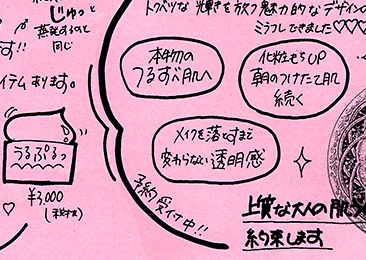 じゅっと
蒸発するのと
同じ
す!!
イテム あります。
うるぷるっ
¥3,000
(税抜)
トクベツな 輝きを放つ魅力的なデザインの
ミラフルできました♡♡♡
本物の
つるすべ肌へ
化粧もちUP
朝のつけたて肌
続く
メイクを落とすまで
変わらない透明感
予約受付中!!
上質な大人の肌
約束します